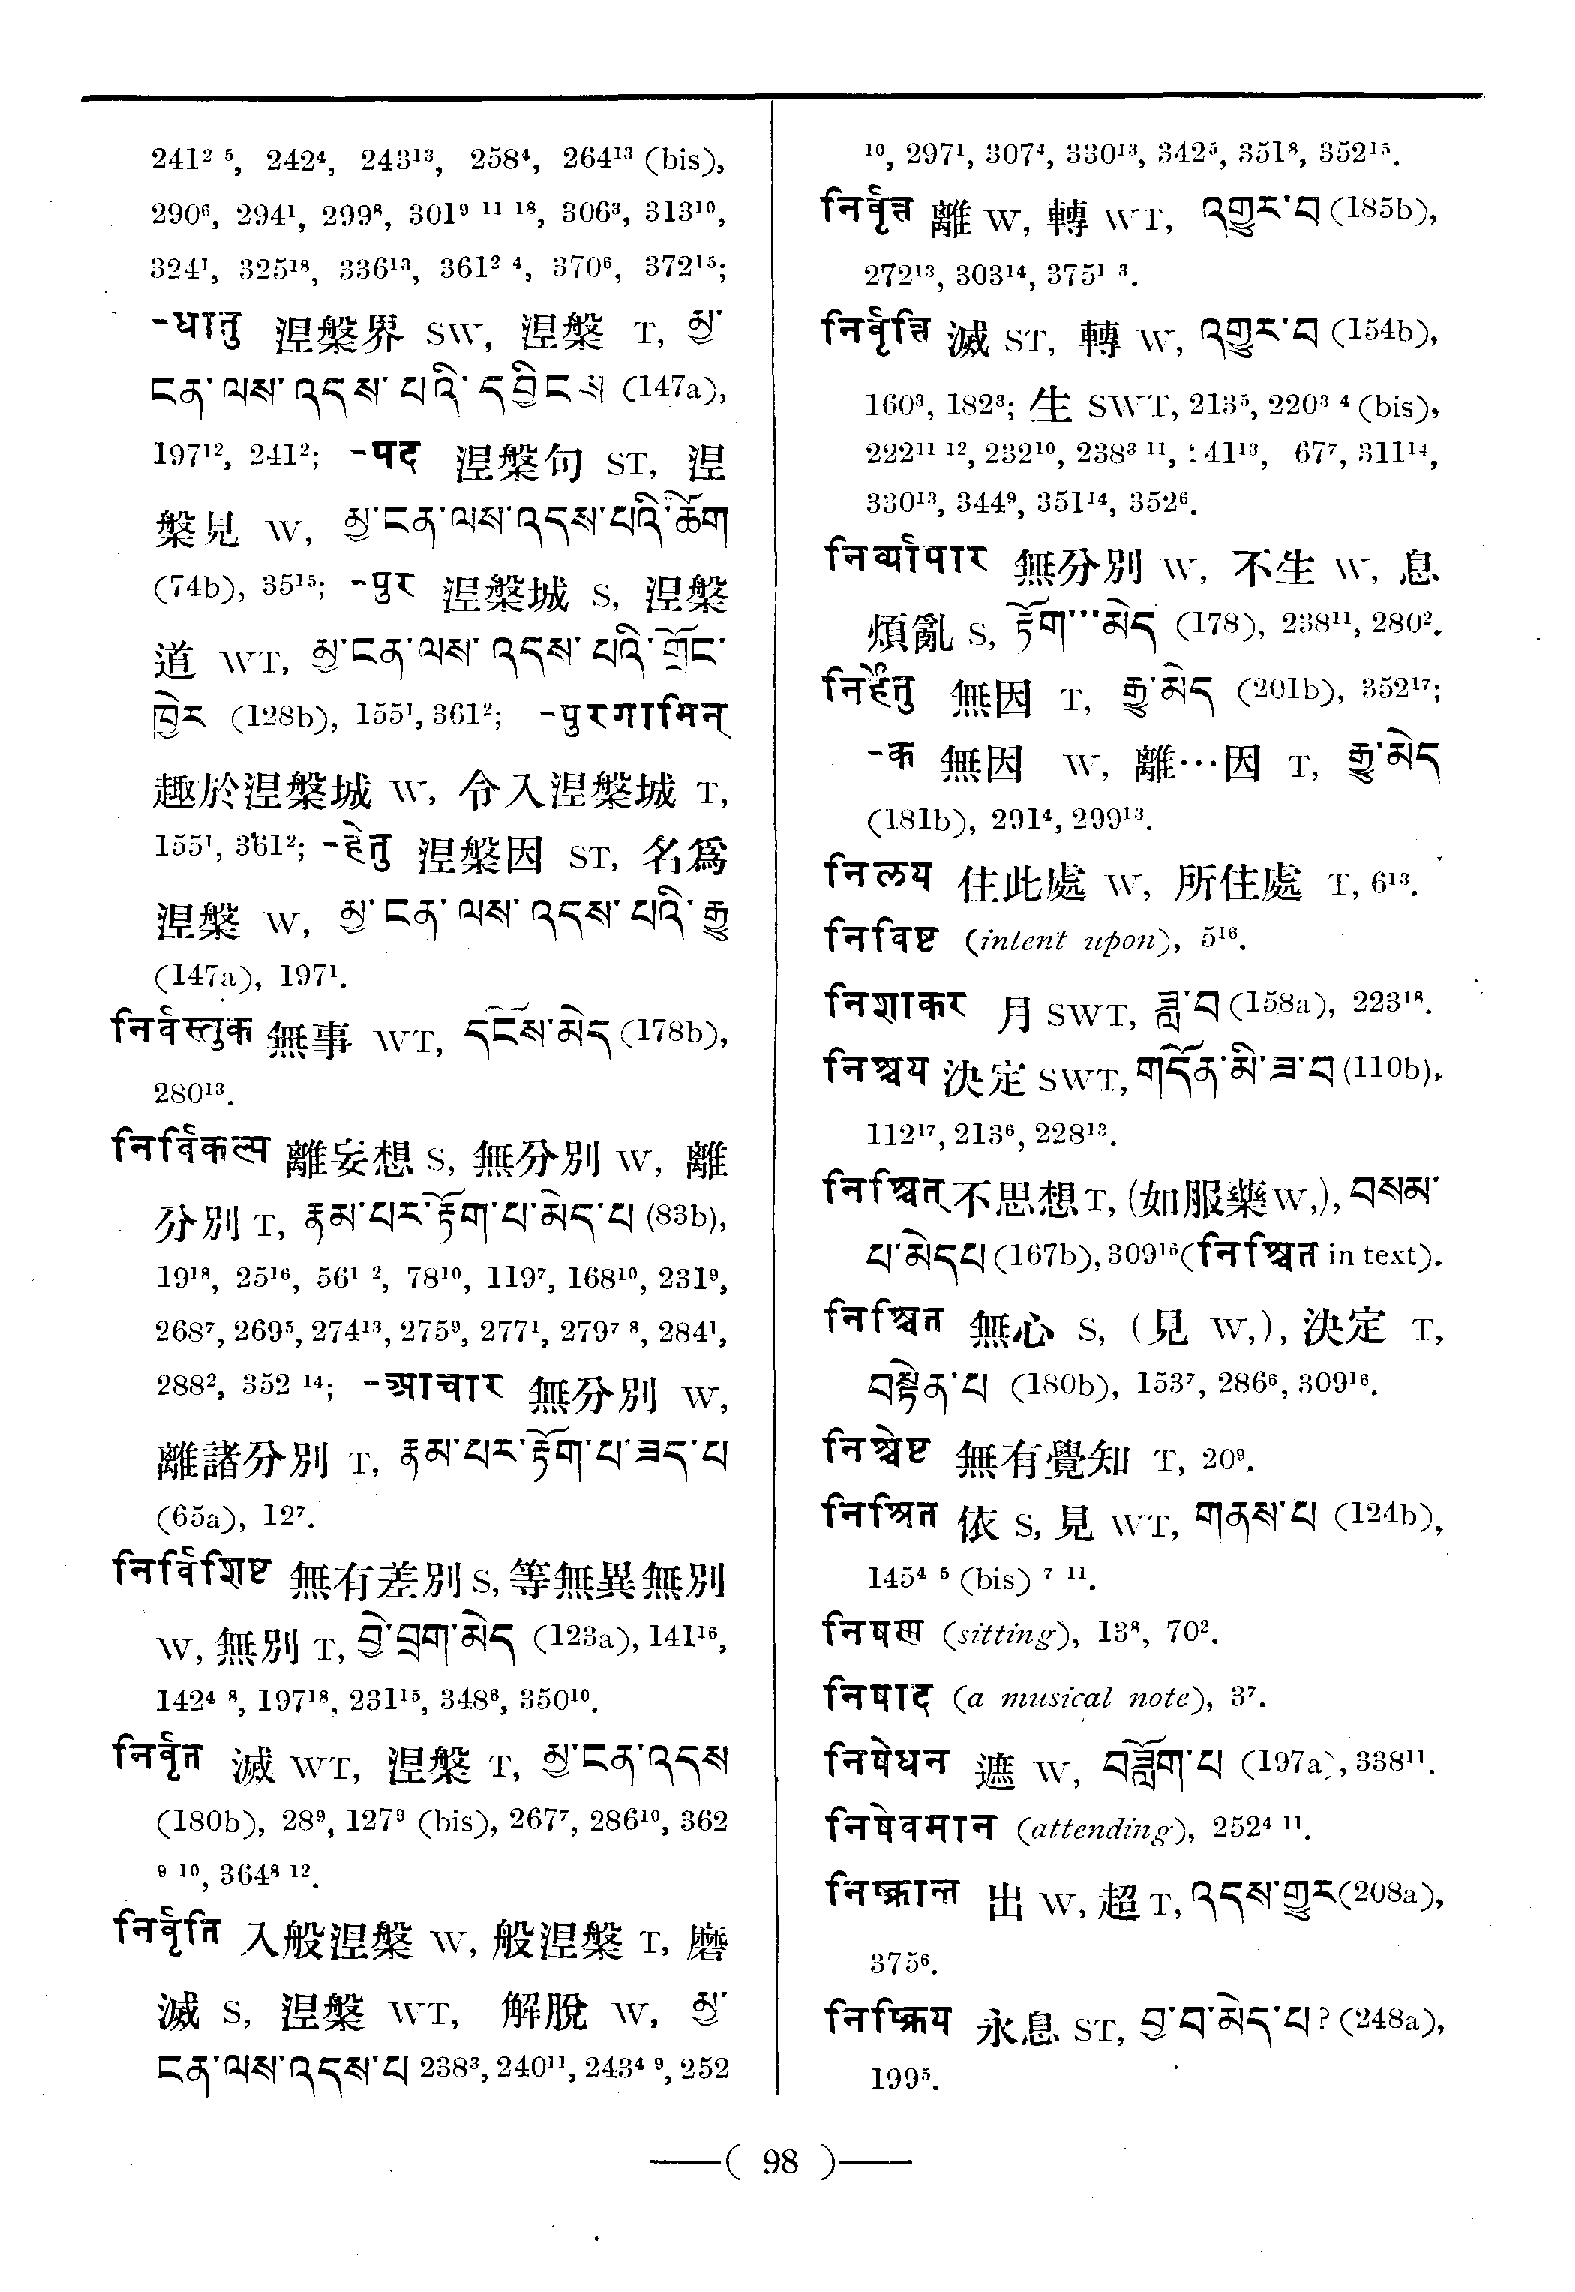 241² ⁵, 242⁴, 243¹³, 258⁴, 264¹³ (bis),
290⁶, 294¹, 299⁸, 301⁹ ¹¹ ¹⁸, 306³, 313¹⁰,
324¹, 325¹⁸, 336¹³, 361² ⁴, 370⁶, 372¹⁵;
-धातु 涅槃界 SW, 涅槃 T, མྱ་
ངན་ལས་འདས་པའི་དབྱིངས (147a),
197¹², 241²; -पद 涅槃句 ST, 涅
槃見 W, མྱ་ངན་ལས་འདས་པའི་ཚོག
(74b), 35¹⁵; -पुर 涅槃城 S, 涅槃
道 WT, མྱ་ངན་ལས་འདས་པའི་གྲོང་
ཁྱེར (128b), 155¹, 361²; -पुरगामिन्
趣於涅槃城 W, 令入涅槃城 T,
155¹, 361²; -हेतु 涅槃因 ST, 名爲
涅槃 W, མྱ་ངན་ལས་འདས་པའི་རྒྱུ
(147a), 197¹.
निर्वस्तुक 無事 WT, དངོས་མེད (178b),
280¹³.
निर्विकल्प 離妄想 S, 無分別 W, 離
分別 T, རྣམ་པར་རྟོག་པ་མེད་པ (83b),
19¹⁸, 25¹⁶, 56¹ ², 78¹⁰, 119⁷, 168¹⁰, 231⁹,
268⁷, 269⁵, 274¹³, 275⁹, 277¹, 279⁷ ⁸, 284¹,
288², 352 ¹⁴; -आचार 無分別 W,
離諸分別 T, རྣམ་པར་རྟོག་པ་ཟད་པ
(65a), 12⁷.
निर्विशिष्ट 無有差別 S, 等無異無別
W, 無別 T, བྱེ་བྲག་མེད (123a), 141¹⁶,
142⁴ ⁸, 197¹⁸, 231¹⁵, 348⁶, 350¹⁰.
निर्वृत 滅 WT, 涅槃 T, མྱ་ངན་འདས
(180b), 28⁹, 127⁹ (bis), 267⁷, 286¹⁰, 362
⁹ ¹⁰, 364⁸ ¹².
निर्वृति 入般涅槃 W, 般涅槃 T, 磨
滅 S, 涅槃 WT, 解脫 W, མྱ་
ངན་ལས་འདས་པ 238³, 240¹¹, 243⁴ ⁹, 252
¹⁰, 297¹, 307⁴, 330¹³, 342⁵, 351⁸, 352¹⁵.
निर्वृत्त 離 W, 轉 WT, འགྱུར་བ (185b),
272¹³, 303¹⁴, 375¹ ³.
निर्वृत्ति 滅 ST, 轉 W, འགྱུར་བ (154b),
160³, 182³; 生 SWT, 213⁵, 220³ ⁴ (bis),
222¹¹ ¹², 232¹⁰, 238³ ¹¹, 41¹³, 67⁷, 311¹⁴,
330¹³, 344⁹, 351¹⁴, 352⁶.
निर्व्यापार 無分別 W, 不生 W, 息
煩亂 S, རྟོག་་་མེད (178), 238¹¹, 280².
निर्हेतु 無因 T, རྒྱུ་མེད (201b), 352¹⁷;
-क 無因 W, 離…因 T, རྒྱུ་མེད
(181b), 291⁴, 299¹³.
निलय 住此處 W, 所住處 T, 6¹³.
निविष्ट (intent upon), 5¹⁶.
निशाकर 月 SWT, ཟླ་བ (158a), 223¹⁸.
निश्चय 決定 SWT, གདོན་མི་ཟ་བ (110b),
112¹⁷, 213⁶, 228¹³.
निश्चित् 不思想 T, (如服藥 W,), བསམ་
པ་མེདཔ (167b), 309¹⁶ (निश्चित in text).
निश्चित 無心 S, (見 W,), 決定 T,
བརྟེན་པ (180b), 153⁷, 286⁶, 309¹⁶.
निश्चेष्ट 無有覺知 T, 20⁹.
निश्रित 依 S, 見 WT, གནས་པ (124b),
145⁴ ⁵ (bis) ⁷ ¹¹.
निषण्ण (sitting), 13⁸, 70².
निषाद (a musical note), 3⁷.
निषेधन 遮 W, བཟློག་པ (197a), 338¹¹.
निषेवमान (attending), 252⁴ ¹¹.
निष्क्रान्त 出 W, 超 T, འདས་གྱུར (208a),
375⁶.
निष्क्रिय 永息 ST, བྱ་བ་མེད་པ? (248a),
199⁵.
( 98 )